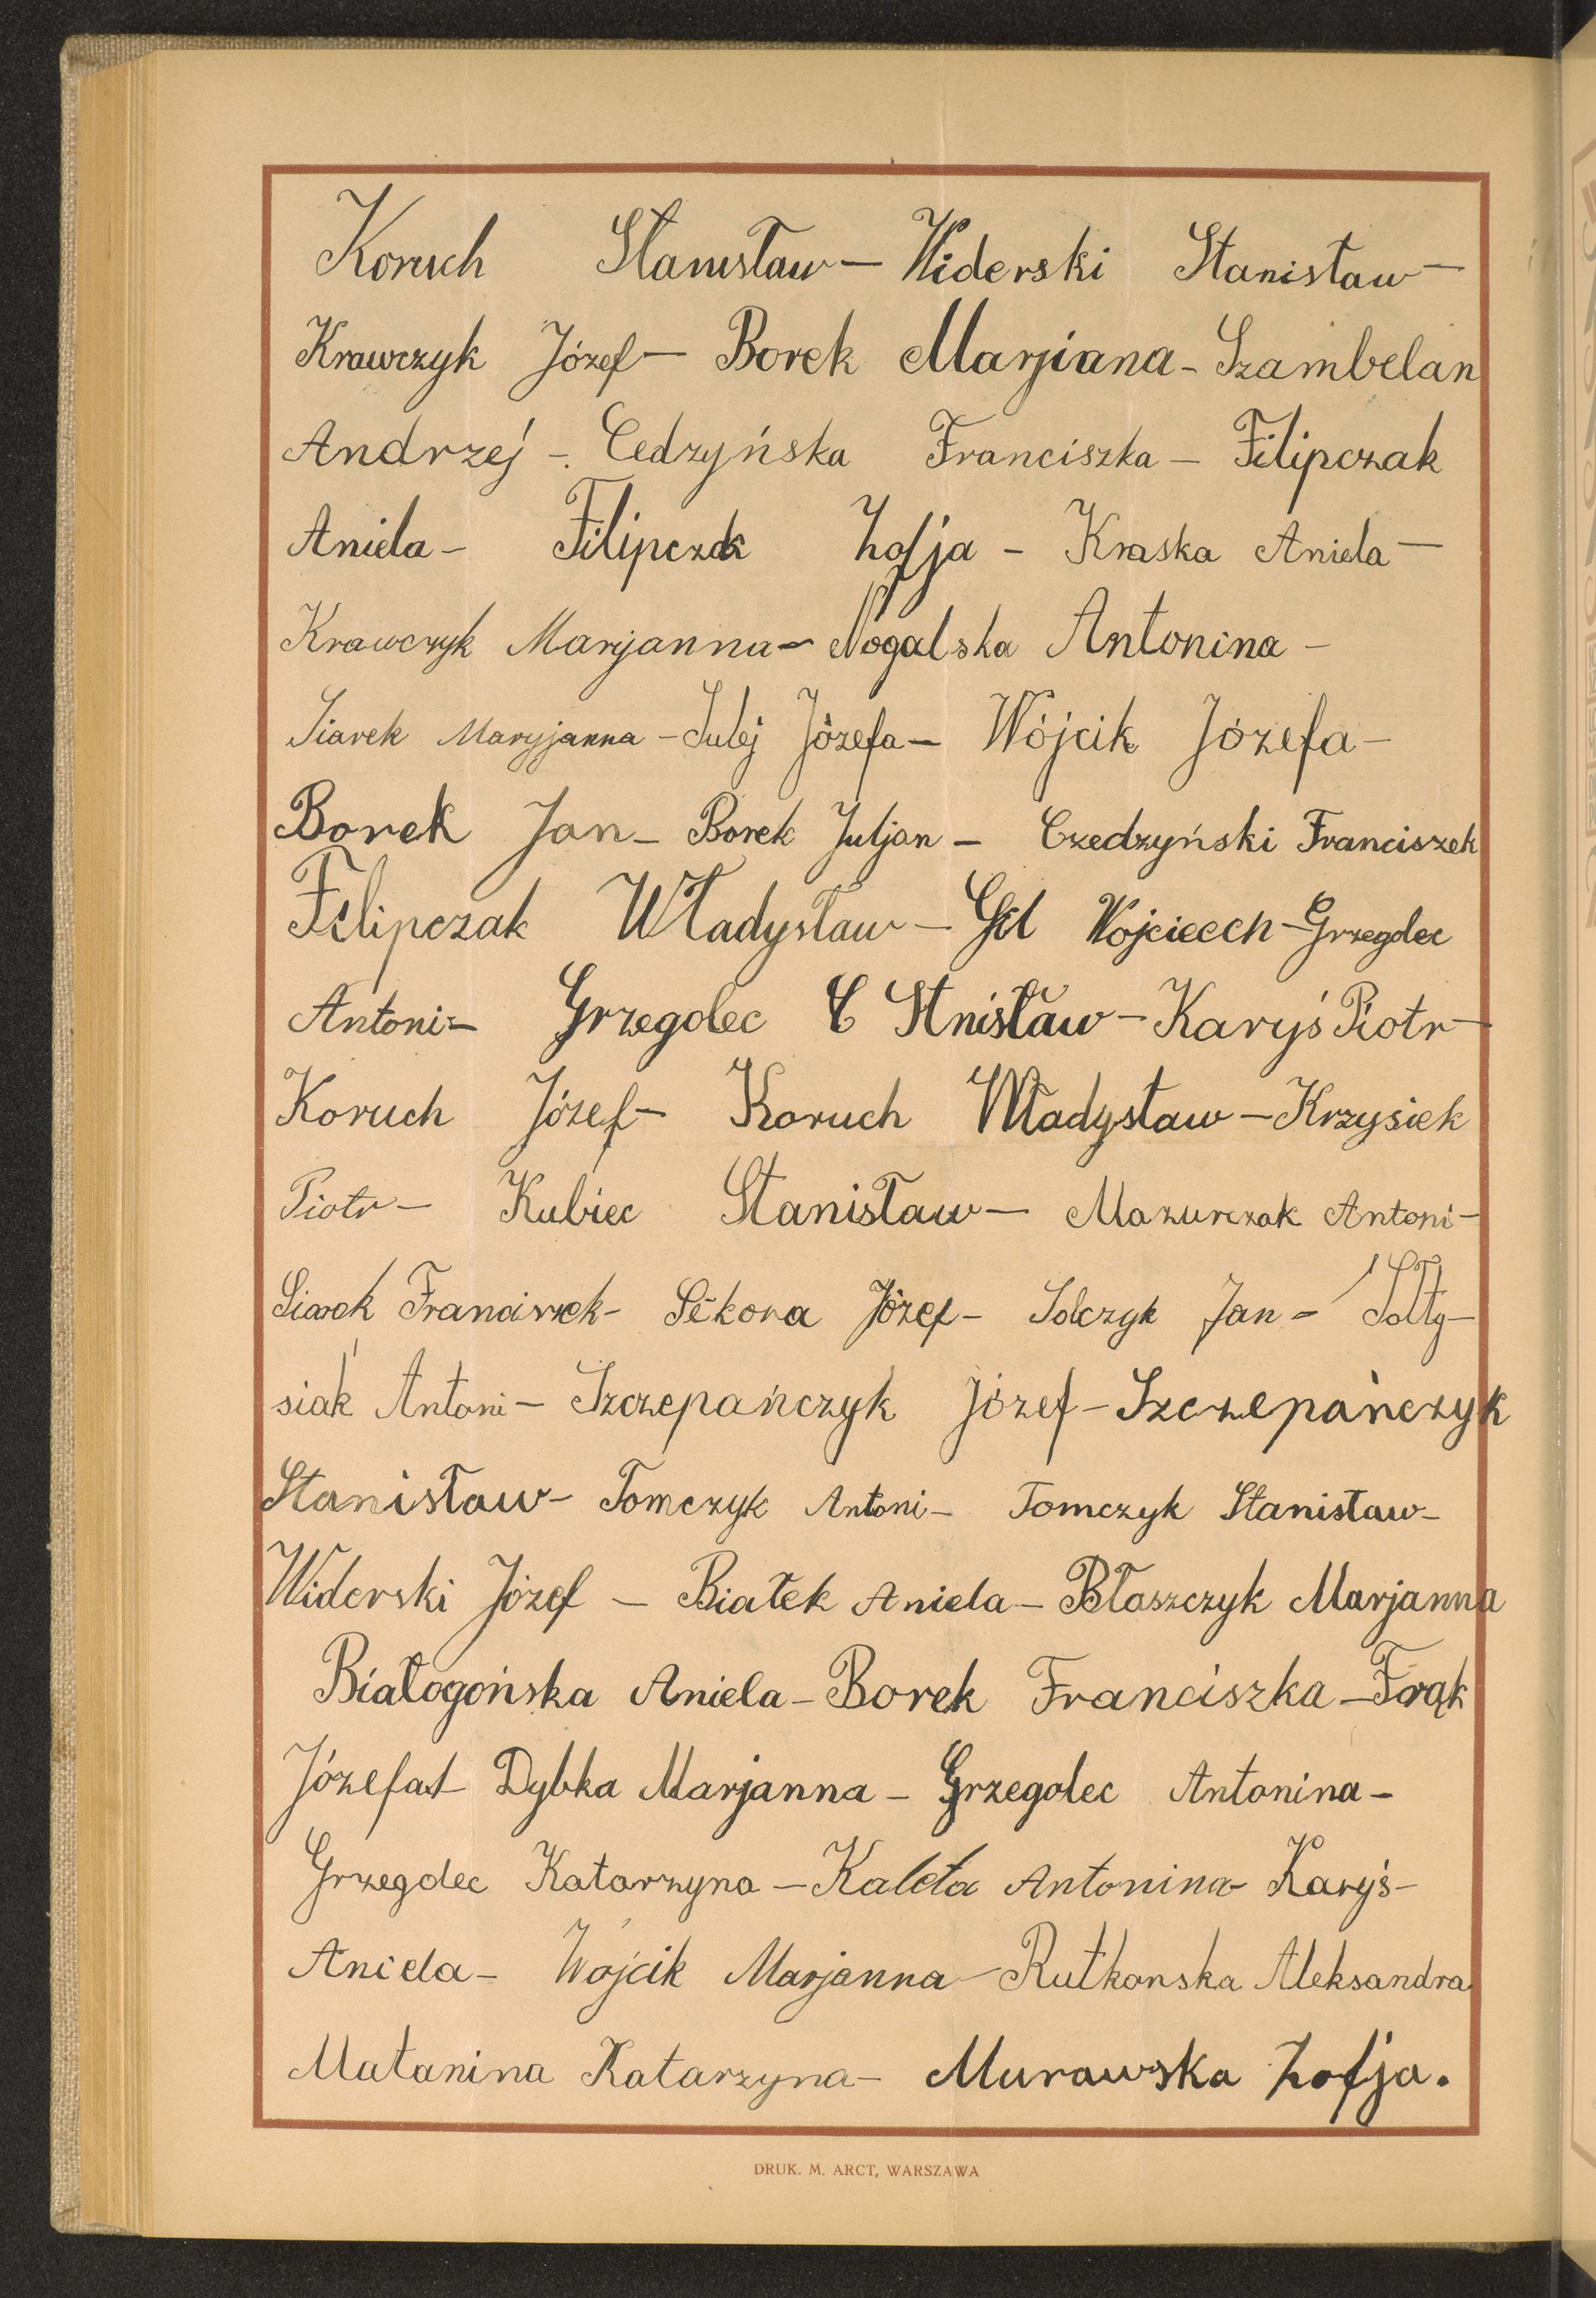 Koruch Stanisław — Widerski Stanisław —
Krawczyk Józef — Borek Marjiana - Szambelan
Andrzéj - Cedzyńska Franciszka — Filipczak
Aniela — Filipczak Zofja - Kraska Aniela —
Krawczyk Marjanna — Nogalska Antonina —
Siarek Maryjanna — Sulej Józefa — Wójcik Józefa —
Borek Jan — Borek Juljan — Czedzyński Franciszek
Filipczak Władysław — Gil Wojcieech — Grzegolec
Antoni — Grzegolec C Stnisław — Karyś Piotr —
Koruch Józef — Koruch Władysław — Krzysiek
Piotr — Kubiec Stanisław — Mazurczak Antoni —
Siarek Franciszek - Sikora Józef — Solczyk Jan — Sołty—
siak Antoni — Szczepańczyk Józef — Szczepańczyk
Stanisław — Tomczyk Antoni — Tomczyk Stanisław —
Widerski Józef — Białek Aniela — Błaszczyk Marjanna
Białogońska Aniela — Borek Franciszka — Frąk
Józefa — Dybka Marjanna — Grzegolec Antonina —
Grzegolec Katarzyna — Kaleta Antonina Karyś —
Aniela — Wójcik Marjanna — Rutkonska Aleksandra
Matanina Katarzyna — Murawska Zofja.
DRUK. M. ARCT, WARSZAWA